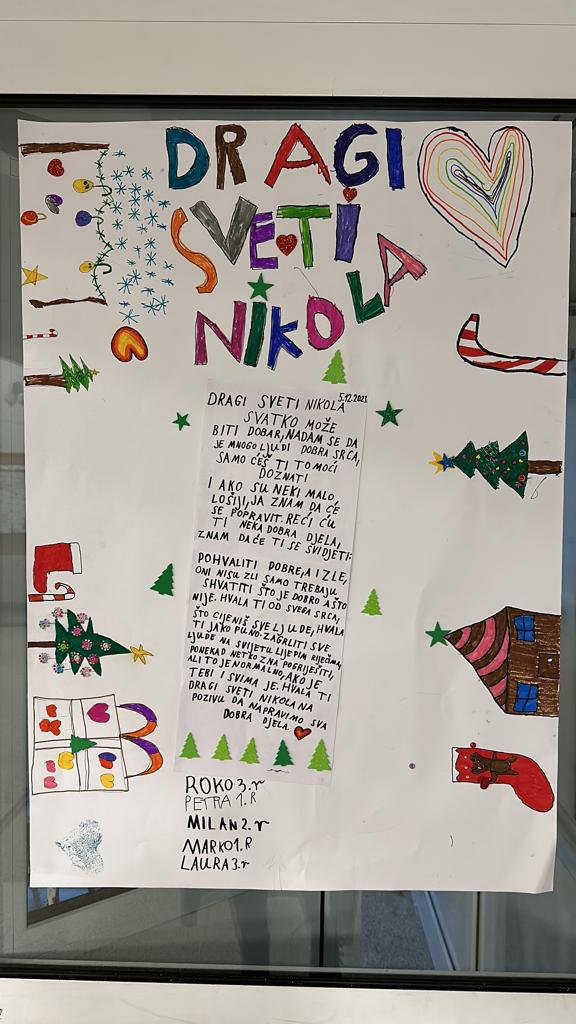 DRAGI
SVETI
NIKOLA
5.12.2023.
DRAGI SVETI NIKOLA
SVATKO MOŽE
BITI DOBAR, NADAM SE DA
JE MNOGO LJUDI DOBRA SRCA,
SAMO ĆEŠ TI TO MOĆI
DOZNATI
I AKO SU NEKI MALO,
LOŠIJI, JA ZNAM DA ĆE
SE POPRAVIT. REĆI ĆU
TI NEKA DOBRA DJELA,
ZNAM DA ĆE TI SE SVIDJETI:
POHVALITI DOBRE, A I ZLE,
ONI NISU ZLI SAMO TREBAJU
SHVATITI ŠTO JE DOBRO A ŠTO
NIJE. HVALA TI OD SVEGA SRCA,
ŠTO CIJENIŠ SVE LJUDE, HVALA
TI JAKO PUNO. ZAGRLITI SVE
LJUDE NA SVIJETU LIJEPIM RIJEČIMA,
PONEKAD NETKO ZNA POGRIJEŠITI,
ALI TO JE NORMALNO, AKO JE
TEBI I SVIMA JE. HVALA TI
DRAGI SVETI NIKOLA NA
POZIVU DA NAPRAVIMO SVA
DOBRA DJELA.
ROKO 3.r
PETRA 1.R
MILAN 2.r
MARKO 1.R
LAURA 3.r